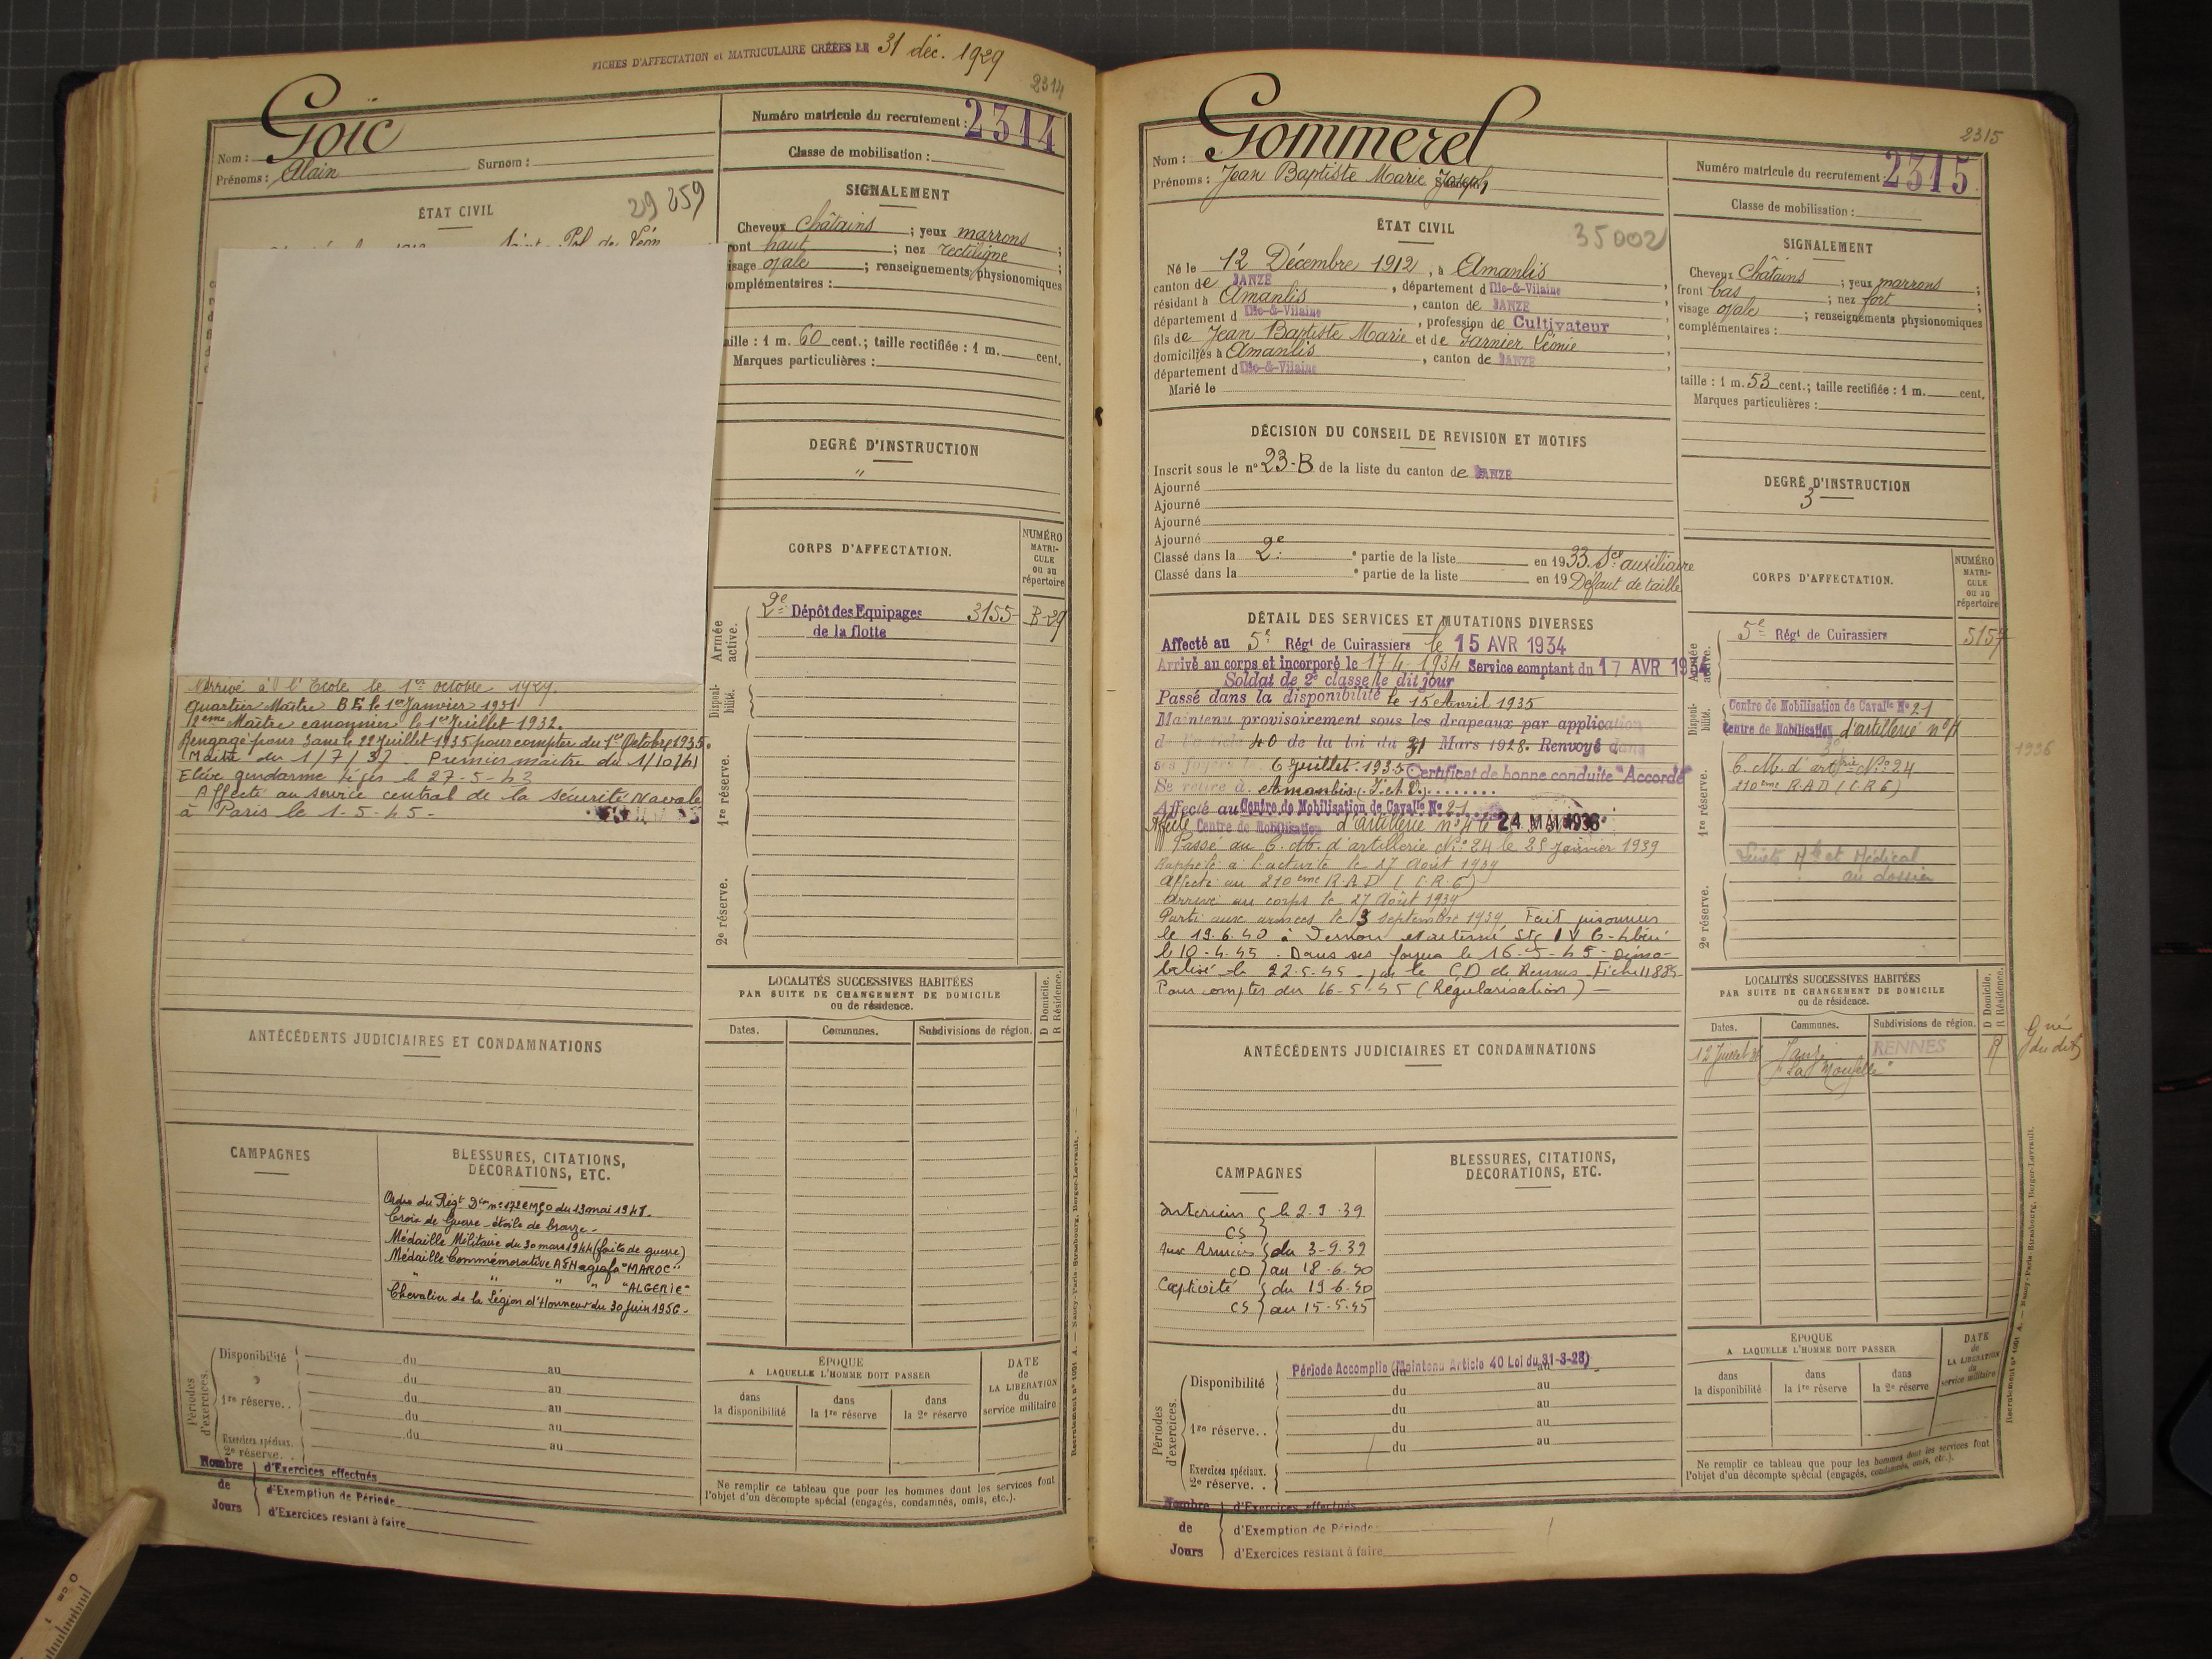 FICHES D'AFFECTATION et MATRICULAIRE CRÉÉES LE 31 déc. 1929
2314
Nom : Goïc
Prénoms : Alain Surnom :
Numéro matricule du recrutement : 2314
Classe de mobilisation :
ÉTAT CIVIL
29 259
Saint-Pol de Léon
SIGNALEMENT
Cheveux châtains ; yeux marrons ;
ront haut ; nez rectiligne ;
isage ovale ; renseignements physionomiques
omplémentaires :
aille : 1 m. 60 cent.; taille rectifiée : 1 m. cent.
Marques particulières :
DEGRÉ D'INSTRUCTION
"
CORPS D'AFFECTATION.
NUMÉRO
MATRI-
CULE
ou au
répertoire
Armée active.
2e Dépôt des Equipages 3155 B-29
de la flotte
Disponi-bilité.
1re réserve.
2e réserve.
Arrivé à l'Ecole le 1er octobre 1929.
Quartier Maître BE le 1er Janvier 1931
2ème Maître canonnier le 1er Juillet 1932.
Rengagé pour 3 ans le 22 Juillet 1935 pour compter du 1er Octobre 1935.
Maître du 1/7/37. Premier maître du 1/10/41
Elève gendarme le 27-5-43
Affecté au service central de la sécurité Navale
à Paris le 1-5-45-
ANTÉCÉDENTS JUDICIAIRES ET CONDAMNATIONS
LOCALITÉS SUCCESSIVES HABITÉES
PAR SUITE DE CHANGEMENT DE DOMICILE
ou de résidence.
Dates. Communes. Subdivisions de région. D Domicile. R Résidence.
CAMPAGNES
BLESSURES, CITATIONS,
DÉCORATIONS, ETC.
Ordre du Régt Don n° 172 EMGO du 19 mai 1945.
Croix de Guerre - étoile de bronze -
Médaille Militaire du 30 mars 1944 (faits de guerre)
Médaille Commémorative AFN agrafe "MAROC"
" " " " "ALGERIE"
Chevalier de la Légion d'Honneur du 30 Juin 1956 -
Périodes d'exercices.
Disponibilité du au
du au
1re réserve. . du au
du au
du au
Exercices spéciaux.
2e réserve. .
Nombre d'Exercices effectués
de d'Exemption de Période
Jours d'Exercices restant à faire
ÉPOQUE
A LAQUELLE L'HOMME DOIT PASSER
dans la disponibilité
dans la 1re réserve
dans la 2e réserve
DATE
de
LA LIBÉRATION
du
service militaire
Ne remplir ce tableau que pour les hommes dont les services font
l'objet d'un décompte spécial (engagés, condamnés, omis, etc.).
Recrutement n° 1091 A. — Nancy-Paris-Strasbourg, Berger-Levrault.
2315
Nom : Gommerel
Prénoms : Jean Baptiste Marie Joseph
Numéro matricule du recrutement : 2315
Classe de mobilisation :
ÉTAT CIVIL
35002
Né le 12 Décembre 1912, à Amanlis
canton de JANZÉ, département d Ille-&-Vilaine
résidant à Amanlis, canton de JANZÉ
département d Ille-&-Vilaine, profession de Cultivateur
fils de Jean Baptiste Marie et de Garnier Léonie
domiciliés à Amanlis, canton de JANZÉ
département d Ille-&-Vilaine
Marié le
SIGNALEMENT
Cheveux châtains ; yeux marrons ;
front bas ; nez fort ;
visage ovale ; renseignements physionomiques
complémentaires :
taille : 1 m. 53 cent.; taille rectifiée : 1 m. cent.
Marques particulières :
DÉCISION DU CONSEIL DE REVISION ET MOTIFS
Inscrit sous le n° 23-B de la liste du canton de JANZÉ
Ajourné
Ajourné
Ajourné
Ajourné
Classé dans la 2e partie de la liste en 1933. Sce auxiliaire
Classé dans la e partie de la liste en 19 Défaut de taille
DEGRÉ D'INSTRUCTION
3
DÉTAIL DES SERVICES ET MUTATIONS DIVERSES
Affecté au 5e Régt de Cuirassiers le 15 AVR 1934
Arrivé au corps et incorporé le 17-4-1934 Service comptant du 17 AVR 1934
Soldat de 2e classe le dit jour
Passé dans la disponibilité le 15 Avril 1935
Maintenu provisoirement sous les drapeaux par application
de l'article 40 de la loi du 31 Mars 1928. Renvoyé dans
ses foyers le 6 Juillet 1935 Certificat de bonne conduite "Accordé"
Se retire à Amanlis (I. et V.)
Affecté au Centre de Mobilisation de Cavalie No 21
Affecté Centre de Mobilisation d'artillerie n° 4 le 24 MAI 1936
Passé au C. M. d'artillerie No 24 le 25 Janvier 1939
Rappelé à l'activité le 27 Août 1939
Affecté au 210ème R.A.D (C.R.6)
Arrivé au corps le 27 Août 1939
Parti aux armées le 3 septembre 1939 Fait prisonnier
le 19.6.40 à et interné Stg IV G - libéré
le 10-4-45. Dans ses foyers le 16-5-45 - Démo-
bilisé le 22-5-45 par le CD de Rennes - Fiche 11885-
Pour compter du 16-5-45 (Régularisation) -
CORPS D'AFFECTATION.
NUMÉRO
MATRI-
CULE
ou au
répertoire
Armée active.
5e Régt de Cuirassiers 5157
Disponi-bilité.
Centre de Mobilisation de Cavalie No 21
Centre de Mobilisation d'artillerie n° 4
1936
1re réserve.
C. M. d'artrie No 24
210ème R.A.D (C.R.6)
Médical
au dossier
2e réserve.
ANTÉCÉDENTS JUDICIAIRES ET CONDAMNATIONS
LOCALITÉS SUCCESSIVES HABITÉES
PAR SUITE DE CHANGEMENT DE DOMICILE
ou de résidence.
Dates. Communes. Subdivisions de région. D Domicile. R Résidence.
12 Juillet 36 Janzé RENNES R
du dit
CAMPAGNES
Intérieur le 2.9.39
CS
Aux Armées du 3-9-39
CD au 18.6.40
Captivité du 19.6.40
CS au 15.5.45
BLESSURES, CITATIONS,
DÉCORATIONS, ETC.
Périodes d'exercices.
Période Accomplie (Maintenu Article 40 Loi du 31-3-28)
Disponibilité du au
du au
1re réserve. . du au
du au
du au
Exercices spéciaux.
2e réserve. .
Nombre d'Exercices effectués
de d'Exemption de Période
Jours d'Exercices restant à faire
ÉPOQUE
A LAQUELLE L'HOMME DOIT PASSER
dans la disponibilité
dans la 1re réserve
dans la 2e réserve
DATE
de
LA LIBÉRATION
du
service militaire
Ne remplir ce tableau que pour les hommes dont les services font
l'objet d'un décompte spécial (engagés, condamnés, omis, etc.).
Recrutement n° 1091 A. — Nancy-Paris-Strasbourg, Berger-Levrault.
0 cm 1